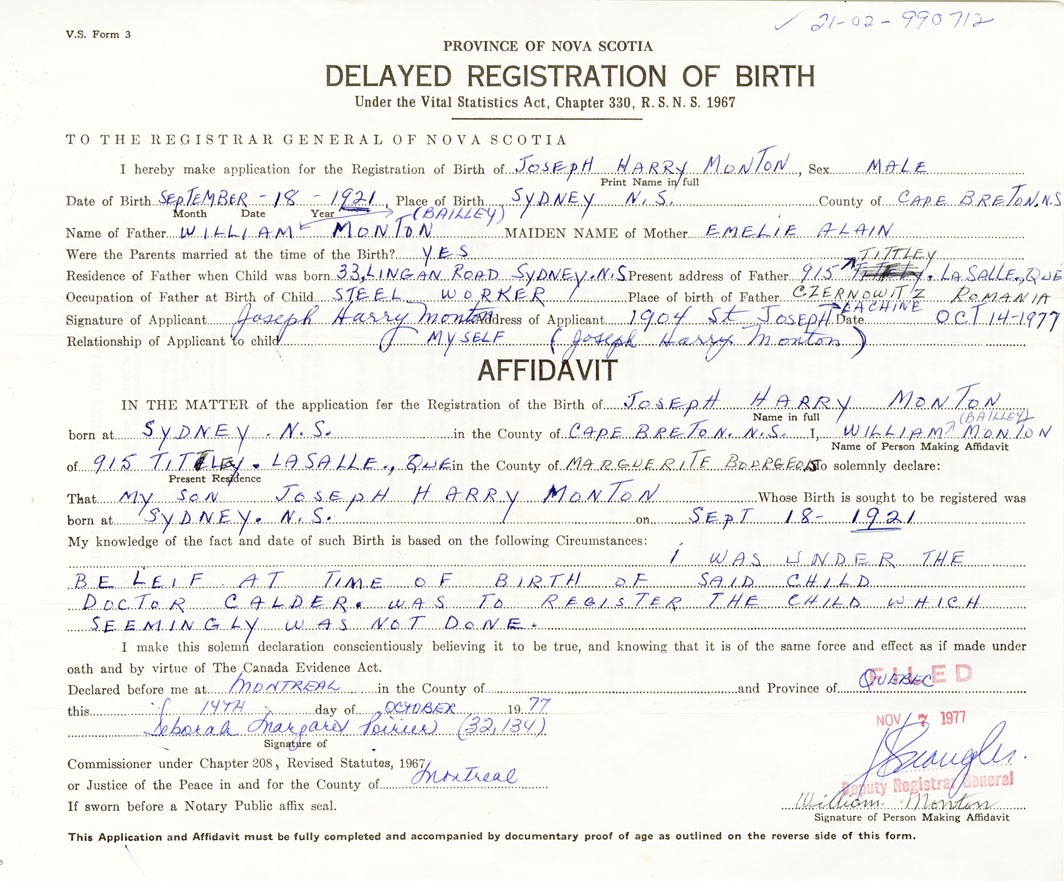 V.S. Form 3
✓ 21-02-990712
PROVINCE OF NOVA SCOTIA
DELAYED REGISTRATION OF BIRTH
Under the Vital Statistics Act, Chapter 330, R.S.N.S. 1967
TO THE REGISTRAR GENERAL OF NOVA SCOTIA
I hereby make application for the Registration of Birth of JOSEPH HARRY MONTON, Sex MALE
Print Name in full
Date of Birth SEPTEMBER - 18 - 1921, Place of Birth SYDNEY N.S. County of CAPE BRETON, N.S
Month Date Year (BAILLEY)
Name of Father WILLIAM MONTON MAIDEN NAME of Mother EMELIE ALAIN
Were the Parents married at the time of the Birth? YES TITTLEY
Residence of Father when Child was born 33, LINGAN ROAD SYDNEY. N.S Present address of Father 915 . LASALLE., QUE
Occupation of Father at Birth of Child STEEL WORKER Place of birth of Father CZERNOWITZ ROMANIA
LACHINE
Signature of Applicant Joseph Harry Monton Address of Applicant 1904 St. JOSEPH Date OCT 14-1977
Relationship of Applicant to child MYSELF (Joseph Harry Monton)
AFFIDAVIT
IN THE MATTER of the application for the Registration of the Birth of JOSEPH HARRY MONTON
Name in full (BAILLEY)
born at SYDNEY. N.S. in the County of CAPE BRETON. N.S. I, WILLIAM MONTON
Name of Person Making Affidavit
of 915 TITTLEY. LASALLE., QUE in the County of MARGUERITE BOURGEOIS do solemnly declare:
Present Residence
That MY SON JOSEPH HARRY MONTON Whose Birth is sought to be registered was
born at SYDNEY. N.S. on SEPT 18- 1921
My knowledge of the fact and date of such Birth is based on the following Circumstances:
I WAS UNDER THE
BELEIF AT TIME OF BIRTH OF SAID CHILD
DOCTOR CALDER. WAS TO REGISTER THE CHILD WHICH
SEEMINGLY WAS NOT DONE.
I make this solemn declaration conscientiously believing it to be true, and knowing that it is of the same force and effect as if made under
oath and by virtue of The Canada Evidence Act.
FILED
Declared before me at MONTREAL in the County of and Province of QUEBEC
this 14TH day of OCTOBER 1977
NOV 7 1977
Deborah Margaret Poirier (32,134)
Signature of
Commissioner under Chapter 208, Revised Statutes, 1967
or Justice of the Peace in and for the County of Montreal
Deputy Registrar General
If sworn before a Notary Public affix seal. William Monton
Signature of Person Making Affidavit
This Application and Affidavit must be fully completed and accompanied by documentary proof of age as outlined on the reverse side of this form.